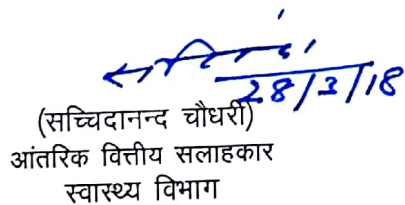 28/3/18
(सच्चिदानन्द चौधरी)
आंतरिक वित्तीय सलाहकार
स्वास्थ्य विभाग